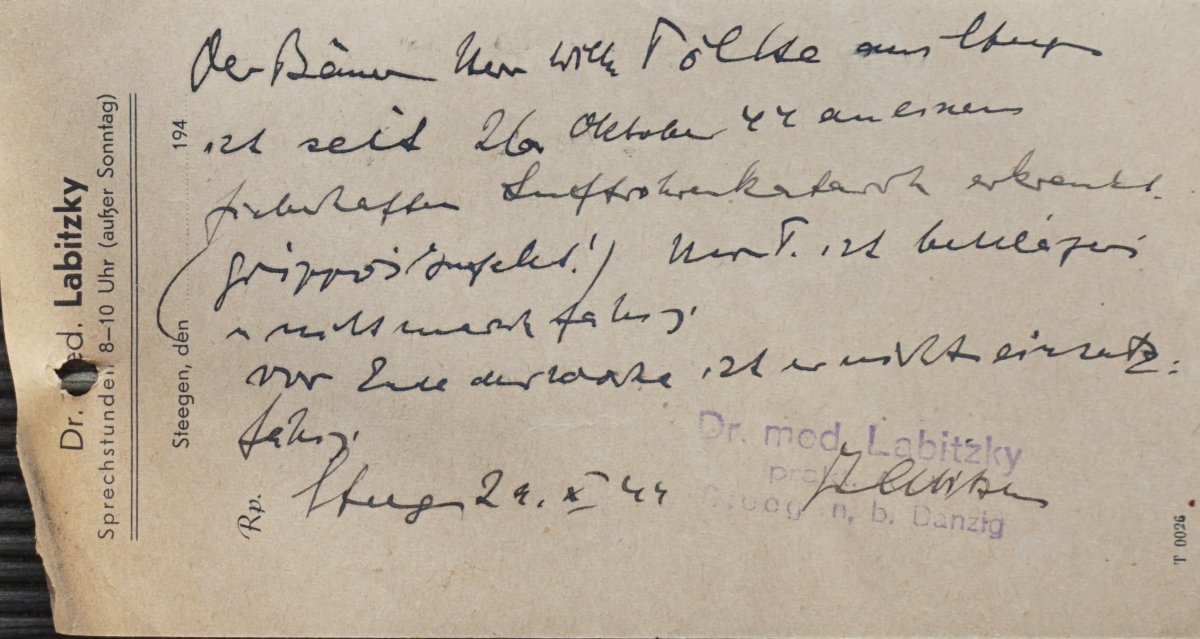 Dr. med. Labitzky
Sprechstunden 8–10 Uhr (außer Sonntag)
Steegen, den 194
Der Herr Wilh. Tölke aus Steegen
ist seit 26. Oktober 44 an einem
fieberhaften Luftröhrenkatarrh erkrankt.
(grippöser Infekt!) Herr T. ist bettlägerig
u nicht marschfähig.
vor Ende der Woche ist er nicht einsatz-
fähig.
Rp. Steegen 29. X 44
Dr. med. Labitzky
prakt.
Steegen, b. Danzig
Labitzky
T 0026